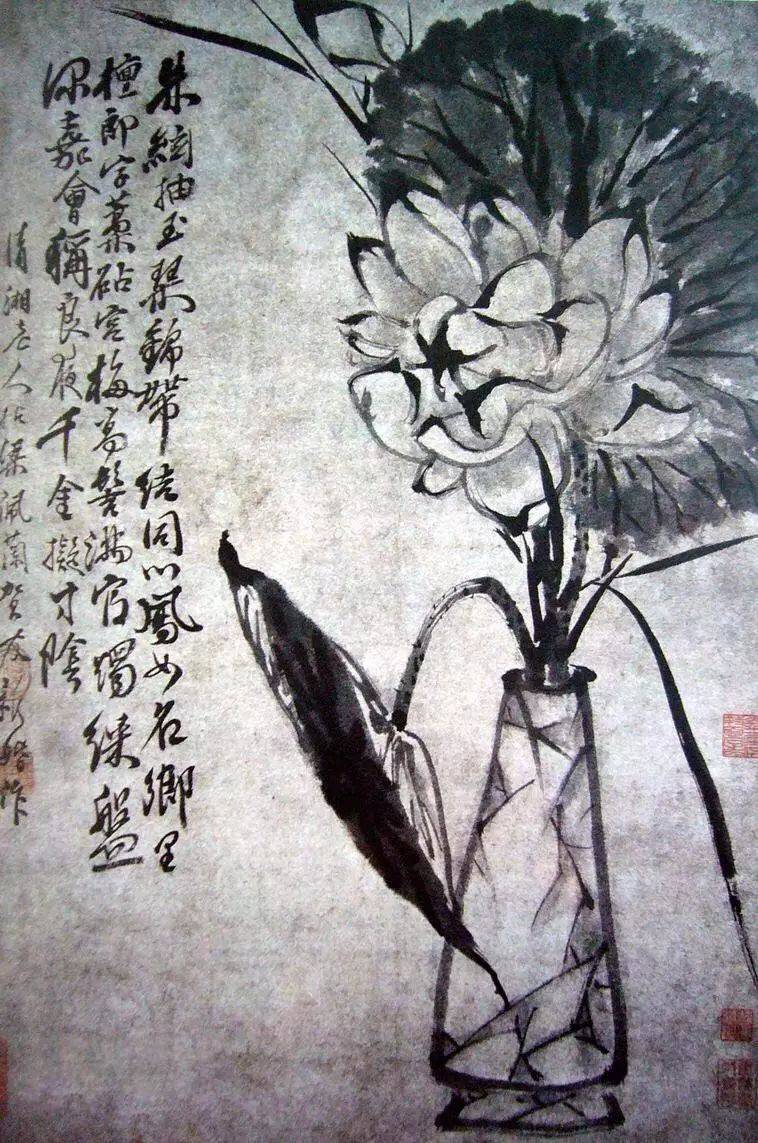 朱絃抽玉琴錦帶結同心鳳女名鄉里
檀郎字藁砧宮梅高髻滿官燭絳盤
深嘉會稱良夜千金擬寸陰
清湘老人 梁佩蘭賀友新婚作